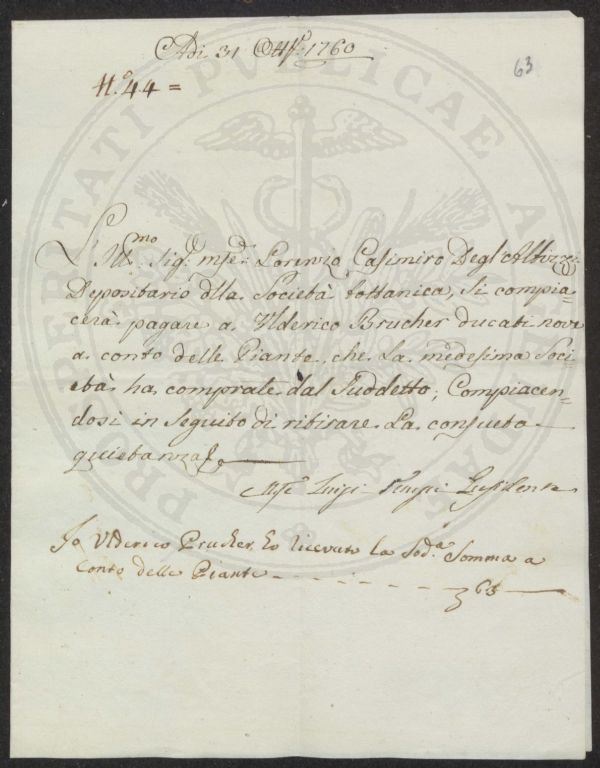 Adi 31 Ott.e 1760
63
N.o 44 =
L'Ill.mo Sig.r mse: Lorenzo Casimiro Degl'Albizzi
Depositario dlla Società bottanica, Si compia=
cerà pagare a Ulderico Brucher ducati nove
a conto delle Piante, che la medesima Soci=
età ha comprate dal Suddetto; Compiacen=
dosi in seguito di ritirare la consueta
quietanza
Luigi
Io Ulderico Prucher ho ricevuto la Sod.a Somma a
Conto delle Piante - - - - - - - 63
PROSPERITATI PUBLICAE AUGENDAE